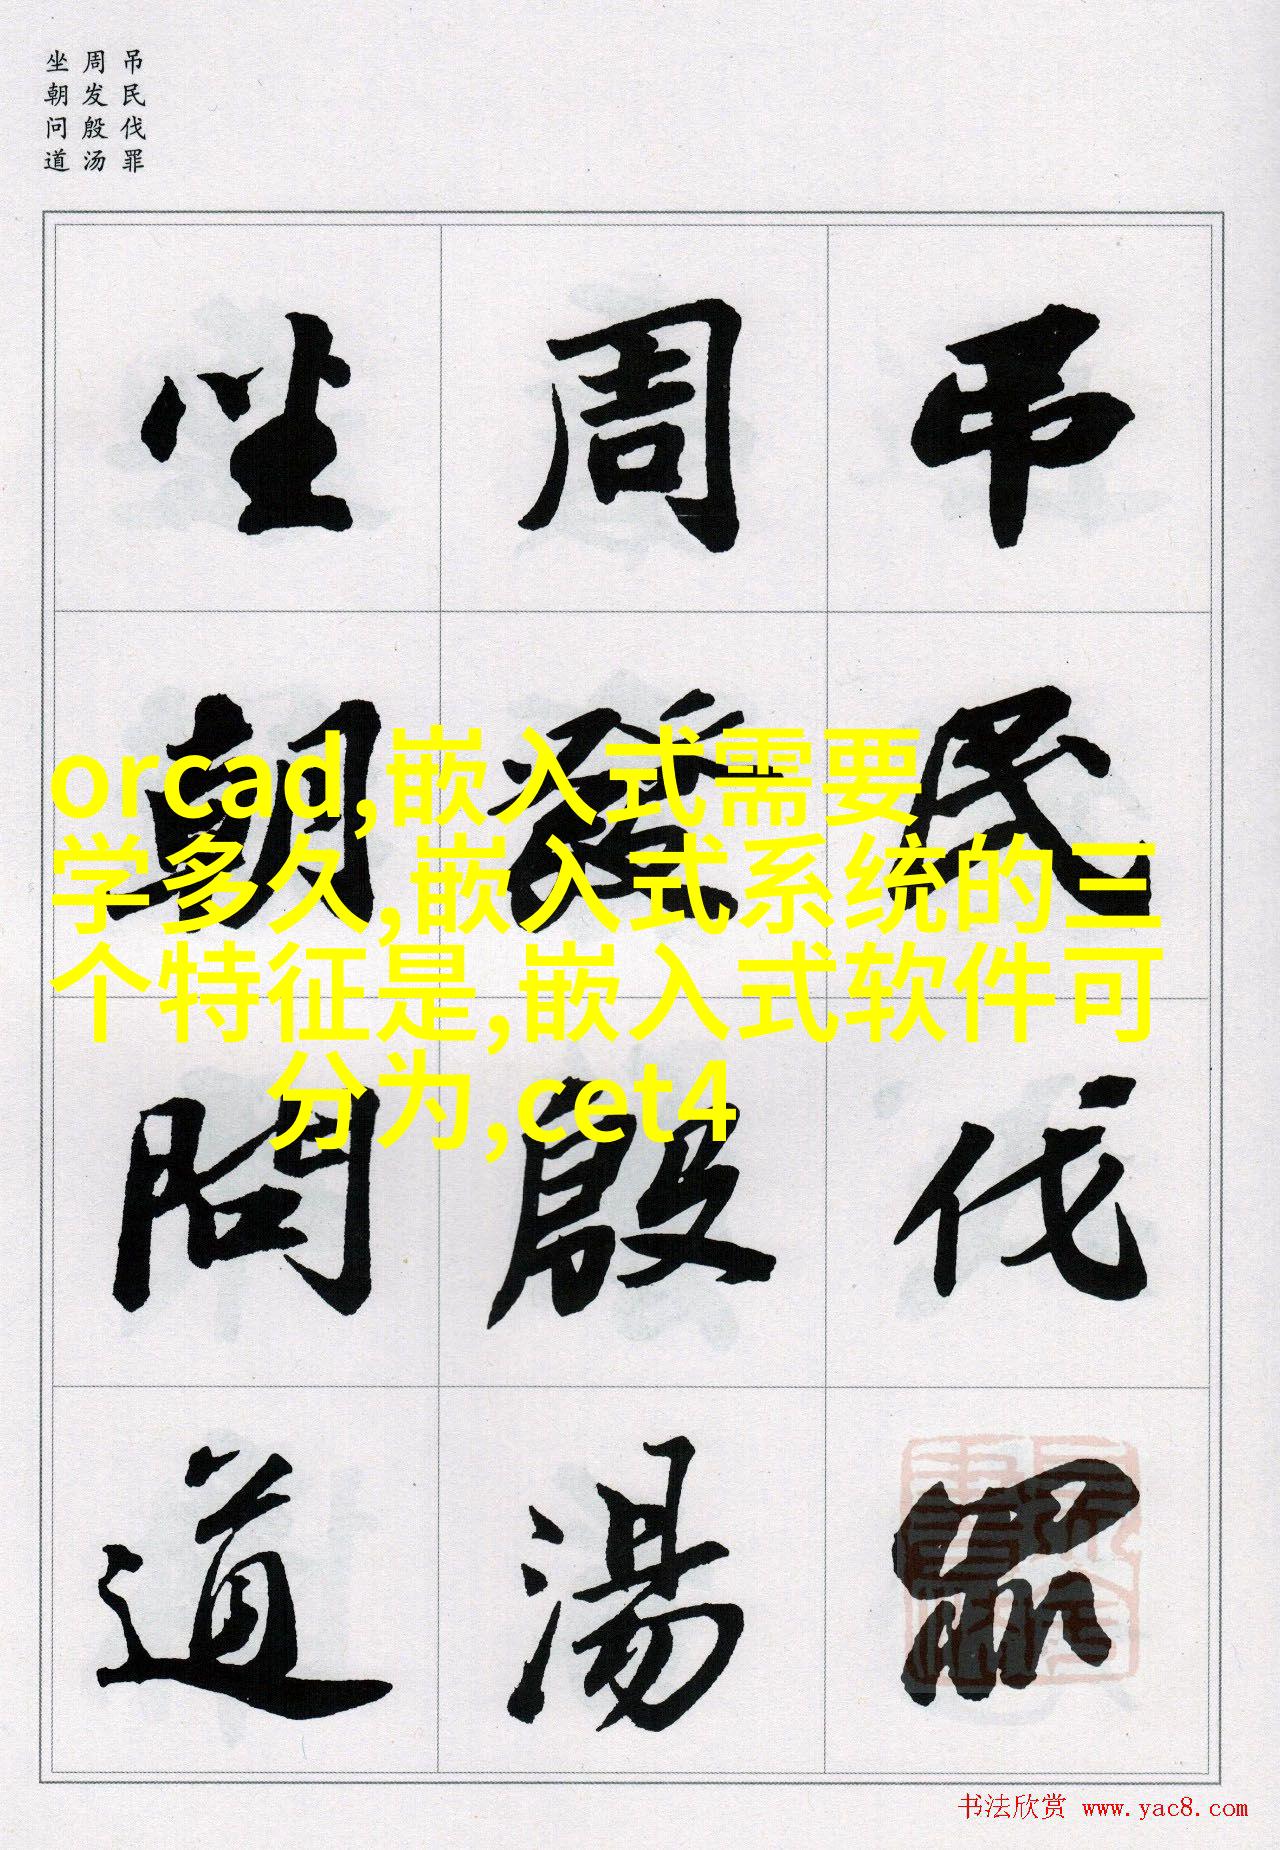 吊民伐罪
周发殷汤
坐朝问道
吊民伐罪
周發殷湯
坐朝問道
orcad,嵌入式需要
学多久,嵌入式系统的三
个特征是,嵌入式软件可
分为,cet4
书法欣赏 www.yac8.com